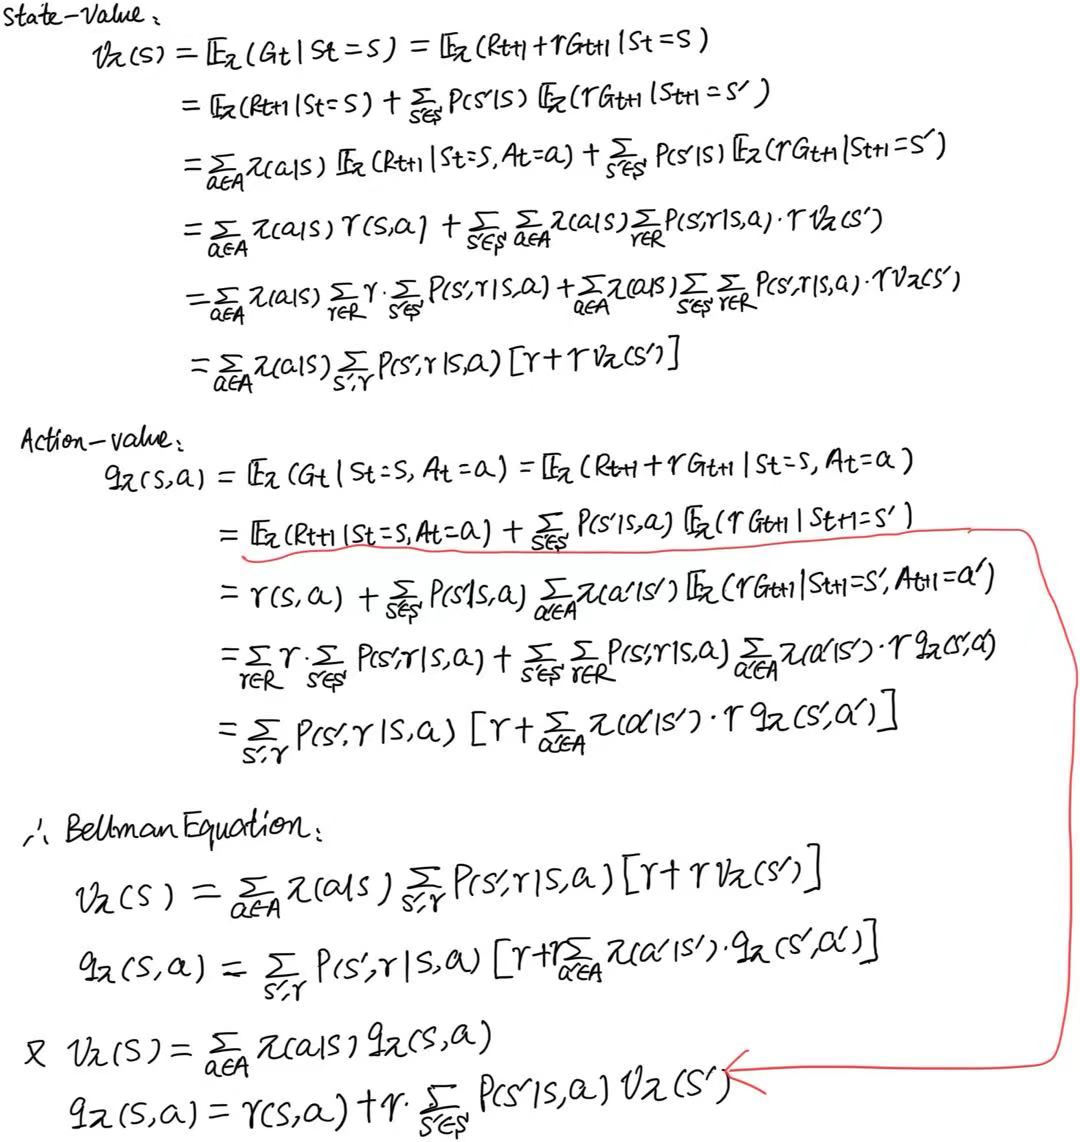 State-Value:
νπ(s) = 𝔼π(Gt | St = s) = 𝔼π(Rt+1 + γGt+1 | St = s)
= 𝔼π(Rt+1 | St = s) + Σs'∈S P(s'|s) 𝔼π(γGt+1 | St+1 = s')
= Σa∈A π(a|s) 𝔼π(Rt+1 | St = s, At = a) + Σs'∈S P(s'|s) 𝔼π(γGt+1 | St+1 = s')
= Σa∈A π(a|s) r(s,a) + Σs'∈S Σa∈A π(a|s) Σr∈R P(s',r|s,a) · γ νπ(s')
= Σa∈A π(a|s) Σr∈R r · Σs'∈S P(s',r|s,a) + Σa∈A π(a|s) Σs'∈S Σr∈R P(s',r|s,a) · γ νπ(s')
= Σa∈A π(a|s) Σs',r P(s',r|s,a) [r + γ νπ(s')]
Action-value:
qπ(s,a) = 𝔼π(Gt | St = s, At = a) = 𝔼π(Rt+1 + γGt+1 | St = s, At = a)
= 𝔼π(Rt+1 | St = s, At = a) + Σs'∈S P(s'|s,a) 𝔼π(γGt+1 | St+1 = s')
= r(s,a) + Σs'∈S P(s'|s,a) Σa'∈A π(a'|s') 𝔼π(γGt+1 | St+1 = s', At+1 = a')
= Σr∈R r · Σs'∈S P(s',r|s,a) + Σs'∈S Σr∈R P(s',r|s,a) Σa'∈A π(a'|s') · γ qπ(s',a')
= Σs',r P(s',r|s,a) [r + Σa'∈A π(a'|s') · γ qπ(s',a')]
∴ Bellman Equation:
νπ(s) = Σa∈A π(a|s) Σs',r P(s',r|s,a) [r + γ νπ(s')]
qπ(s,a) = Σs',r P(s',r|s,a) [r + γ Σa'∈A π(a'|s') · qπ(s',a')]
又 νπ(s) = Σa∈A π(a|s) qπ(s,a)
qπ(s,a) = r(s,a) + γ · Σs'∈S P(s'|s,a) νπ(s')